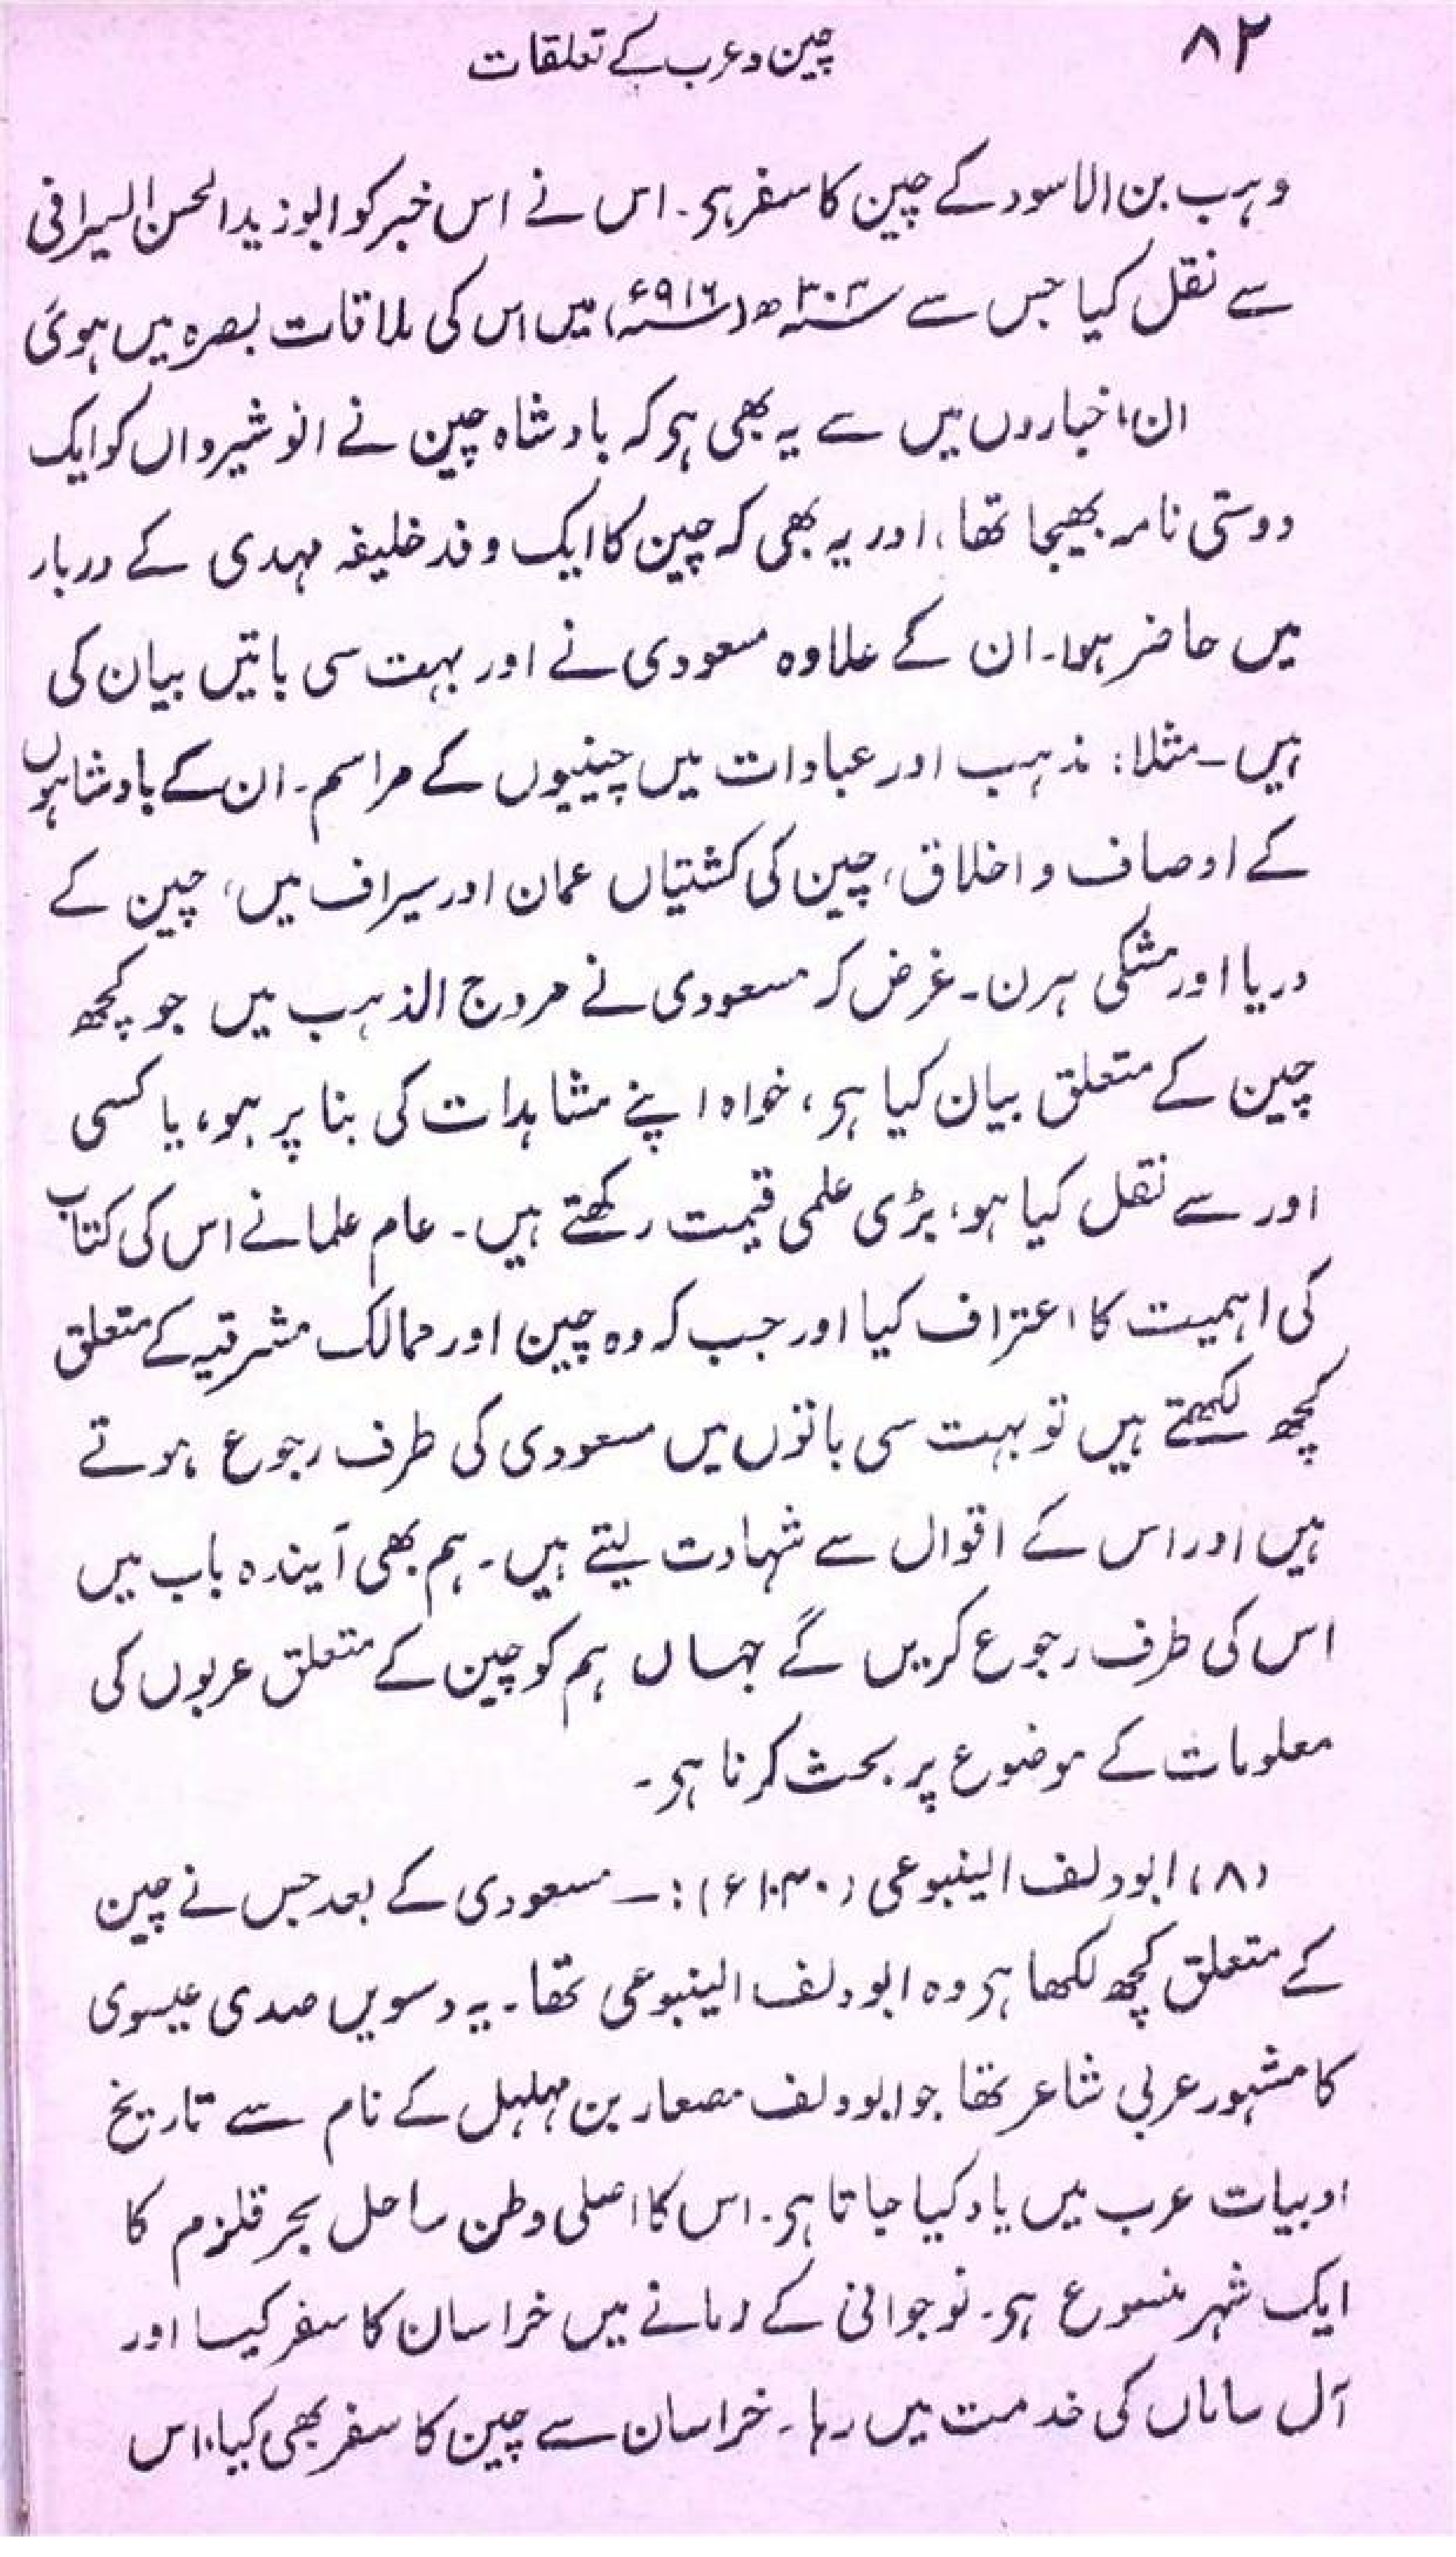 ۸۲
چین و عرب کے تعلقات
وہب بن الاسود کے چین کا سفر ہی۔ اس نے اس خبر کو ابوزید الحسن السیرافی
سے نقل کیا جس سے سنہ ۳۰۳ھ (سنہ ۹۱۶ء) میں اس کی ملاقات بصرہ میں ہوئی
ان اخباروں میں سے یہ بھی ہی کہ بادشاہ چین نے انوشیرواں کو ایک
دوستی نامہ بھیجا تھا، اور یہ بھی کہ چین کا ایک وفد خلیفہ مہدی کے دربار
میں حاضر ہوا۔ ان کے علاوہ مسعودی نے اور بہت سی باتیں بیان کی
ہیں۔ مثلا: مذہب اور عبادات میں چینیوں کے مراسم۔ ان کے بادشاہوں
کے اوصاف و اخلاق، چین کی کشتیاں عمان اور سیراف میں، چین کے
دریا اور مشکی ہرن۔ غرض کہ مسعودی نے مروج الذہب میں جو کچھ
چین کے متعلق بیان کیا ہی، خواہ اپنے مشاہدات کی بنا پر ہو، یا کسی
اور سے نقل کیا ہو، بڑی علمی قیمت رکھتے ہیں۔ عام علما نے اس کی کتاب
کی اہمیت کا اعتراف کیا اور جب کہ وہ چین اور ممالک مشرقیہ کے متعلق
کچھ لکھتے ہیں تو بہت سی باتوں میں مسعودی کی طرف رجوع ہوتے
ہیں اور اس کے اقوال سے شہادت لیتے ہیں۔ ہم بھی آیندہ باب میں
اس کی طرف رجوع کریں گے جہاں ہم کو چین کے متعلق عربوں کی
معلومات کے موضوع پر بحث کرنا ہی۔
(۸) ابودلف الینبوعی (۱۰۳۰ء):۔ مسعودی کے بعد جس نے چین
کے متعلق کچھ لکھا ہی وہ ابودلف الینبوعی تھا۔ یہ دسویں صدی عیسوی
کا مشہور عربی شاعر تھا جو ابودلف مصعار بن مہلہل کے نام سے تاریخ
ادبیات عرب میں یاد کیا جاتا ہی۔ اس کا اصلی وطن ساحل بحر قلزم کا
ایک شہر ہی۔ نوجوانی کے زمانے میں خراسان کا سفر کیا اور
آل ساماں کی خدمت میں رہا۔ خراسان سے چین کا سفر بھی کیا۔ اس